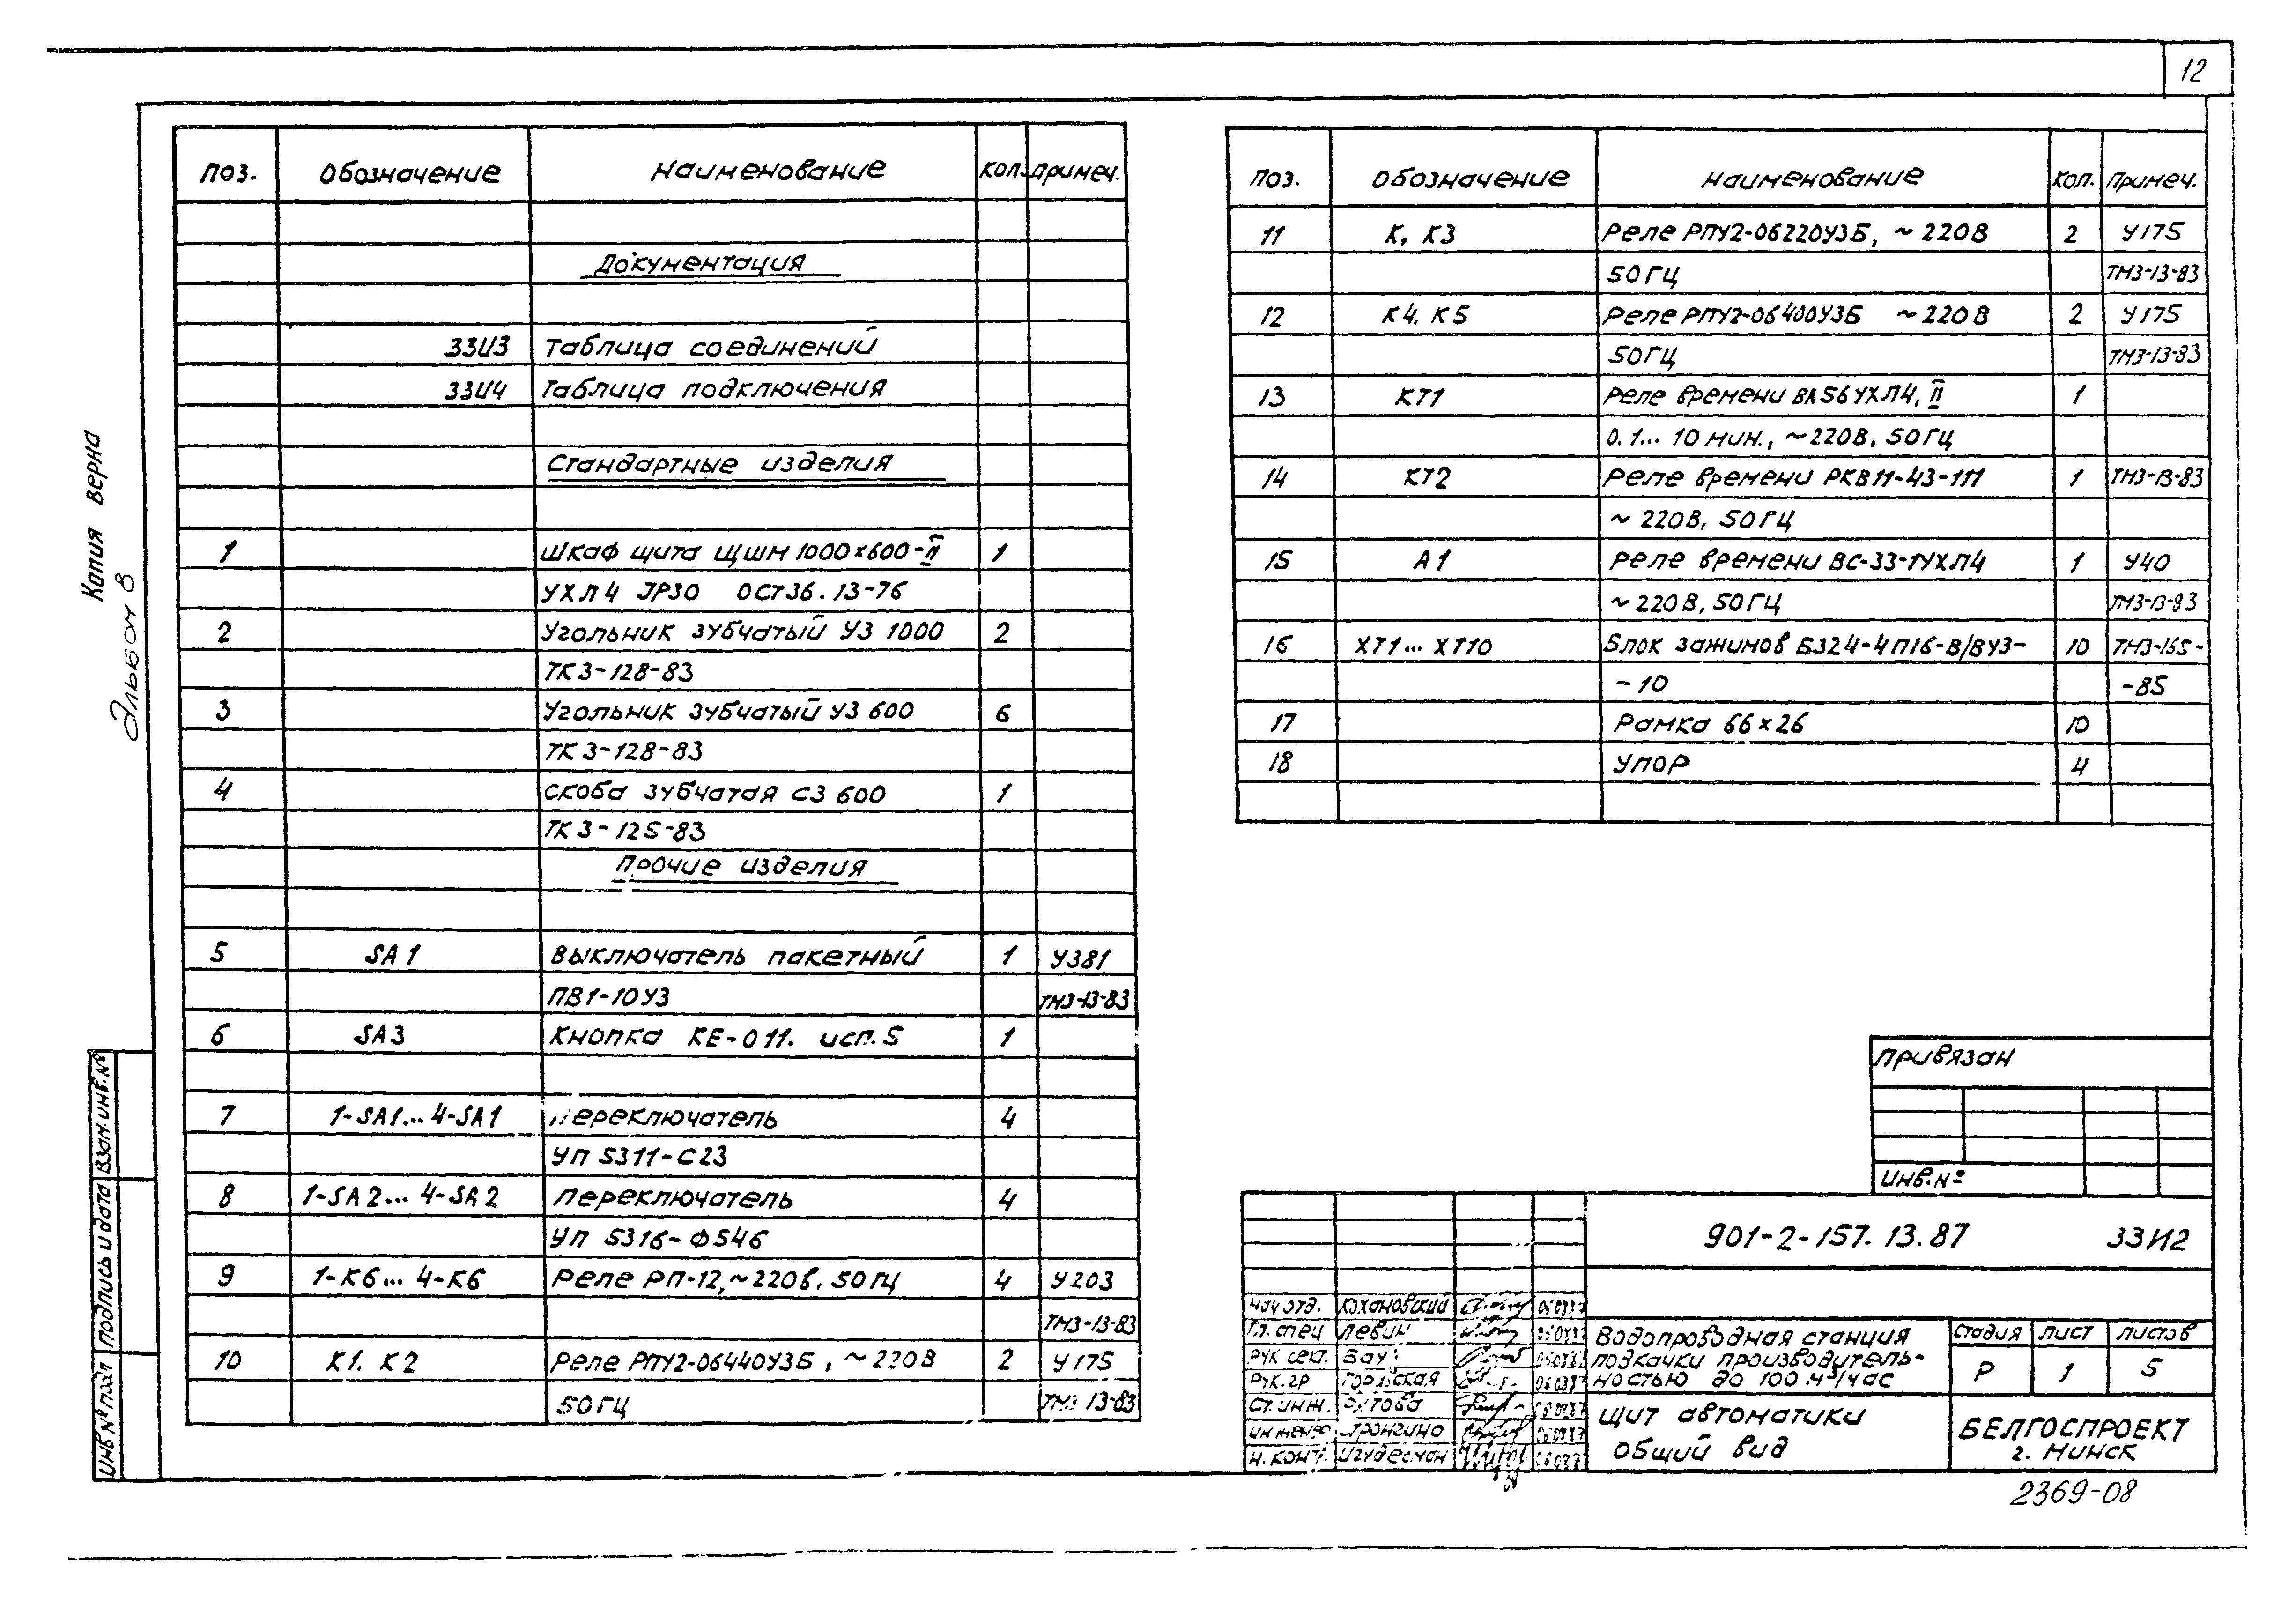 12
Копия верна
Альбом 8
поз. обозначение наименование кол. примеч.
Документация
33И3 Таблица соединений
33И4 Таблица подключения
Стандартные изделия
1 Шкаф щита ЩШМ 1000×600-II 1
УХЛ4 JP30 ОСТ36.13-76
2 Угольник зубчатый УЗ 1000 2
ТК3-128-83
3 Угольник зубчатый УЗ 600 6
ТК3-128-83
4 скоба зубчатая СЗ 600 1
ТК3-125-83
Прочие изделия
5 SA1 Выключатель пакетный 1 У381
ПВ1-10У3 ТМ3-13-83
6 SA3 Кнопка КЕ-011. исп.5 1
7 1-SA1... 4-SA1 Переключатель 4
УП 5311-С23
8 1-SA2... 4-SA2 Переключатель 4
УП 5316-Ф546
9 1-К6... 4-К6 Реле РП-12,~220В, 50Гц 4 У203
ТМ3-13-83
10 К1. К2 Реле РПУ2-06440У3Б, ~220В 2 У175
50ГЦ ТМ3 13-83
поз. обозначение наименование кол. примеч.
11 К, К3 Реле РПУ2-06220У3Б, ~220В 2 У175
50ГЦ ТМ3-13-83
12 К4. К5 Реле РПУ2-06400У3Б ~220В 2 У175
50ГЦ ТМ3-13-83
13 КТ1 Реле времени ВЛ56УХЛ4, II 1
0.1... 10 мин., ~220В, 50Гц
14 КТ2 Реле времени РКВ11-43-111 1 ТМ3-13-83
~220В, 50ГЦ
15 А1 Реле времени ВС-33-1УХЛ4 1 У40
~220В, 50ГЦ ТМ3-13-83
16 ХТ1... ХТ10 Блок зажимов БЗ24-4П16-В/ВУ3- 10 ТМ3-165-
-10 -85
17 Рамка 66×26 10
18 Упор 4
Привязан
Инв.№
901-2-157. 13.87 33И2
Нач отд. Кохановский
Гл. спец Левин
Рук сект. Бау
Рук. гр
Ст. инж.
Инженер
Н. конт.
Водопроводная станция
подкачки производитель-
ностью до 100 м³/час
стадия лист листов
Р 1 5
Щит автоматики
Общий вид
БЕЛГОСПРОЕКТ
г. Минск
2369-08
Взам.инв.№
Подпись и дата
Инв № подл